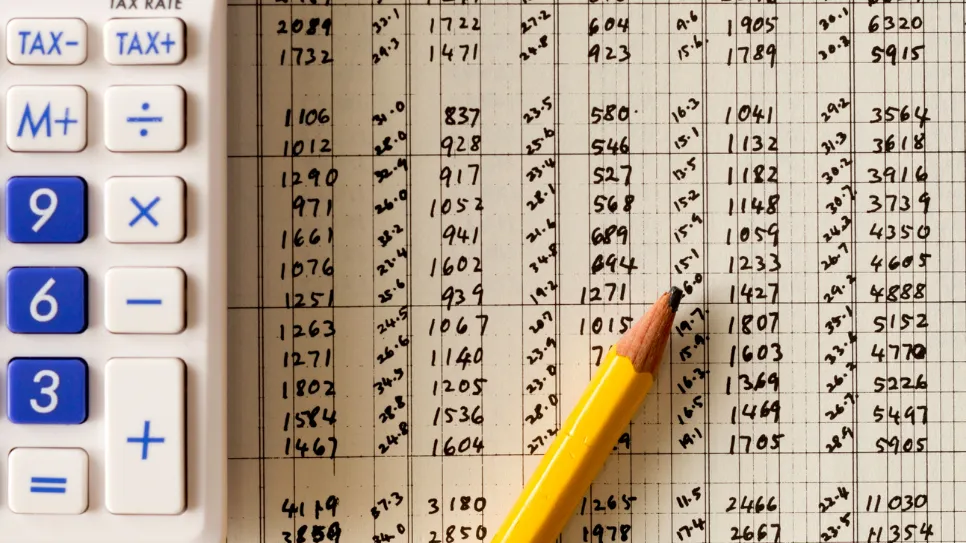 TAX RATE
TAX- TAX+
M+ ÷
9 ×
6 −
3
+
=
2089 1722 27.2 604 9.6 1905 30.1 6320
1732 29.3 1471 24.8 923 15.6 1789 5915
1106 31.0 837 23.5 580 16.3 1041 29.2 3564
1012 28.0 928 25.6 546 15.1 1132 31.3 3618
1290 32.9 917 23.4 527 13.5 1182 30.2 3916
971 26.0 1052 28.1 568 15.2 1148 30.7 3739
1661 38.2 941 21.6 689 15.9 1059 24.3 4350
1076 23.4 1602 34.8 694 15.1 1233 26.7 4605
1251 25.6 939 19.2 1271 1427 29.2 4888
1263 24.5 1067 20.7 1015 19.7 1807 35.1 5152
1271 26.6 1140 23.9 15.9 1603 4770
1802 34.5 1205 23.0 16.3 1369 26.2 5226
1584 28.8 1536 28.0 16.5 1469 26.7 5497
1467 24.8 1604 27.2 19.1 1705 28.9 5905
4119 37.3 3180 1265 11.5 2466 22.4 11030
34.0 2850 1978 17.4 2667 23.5 11354